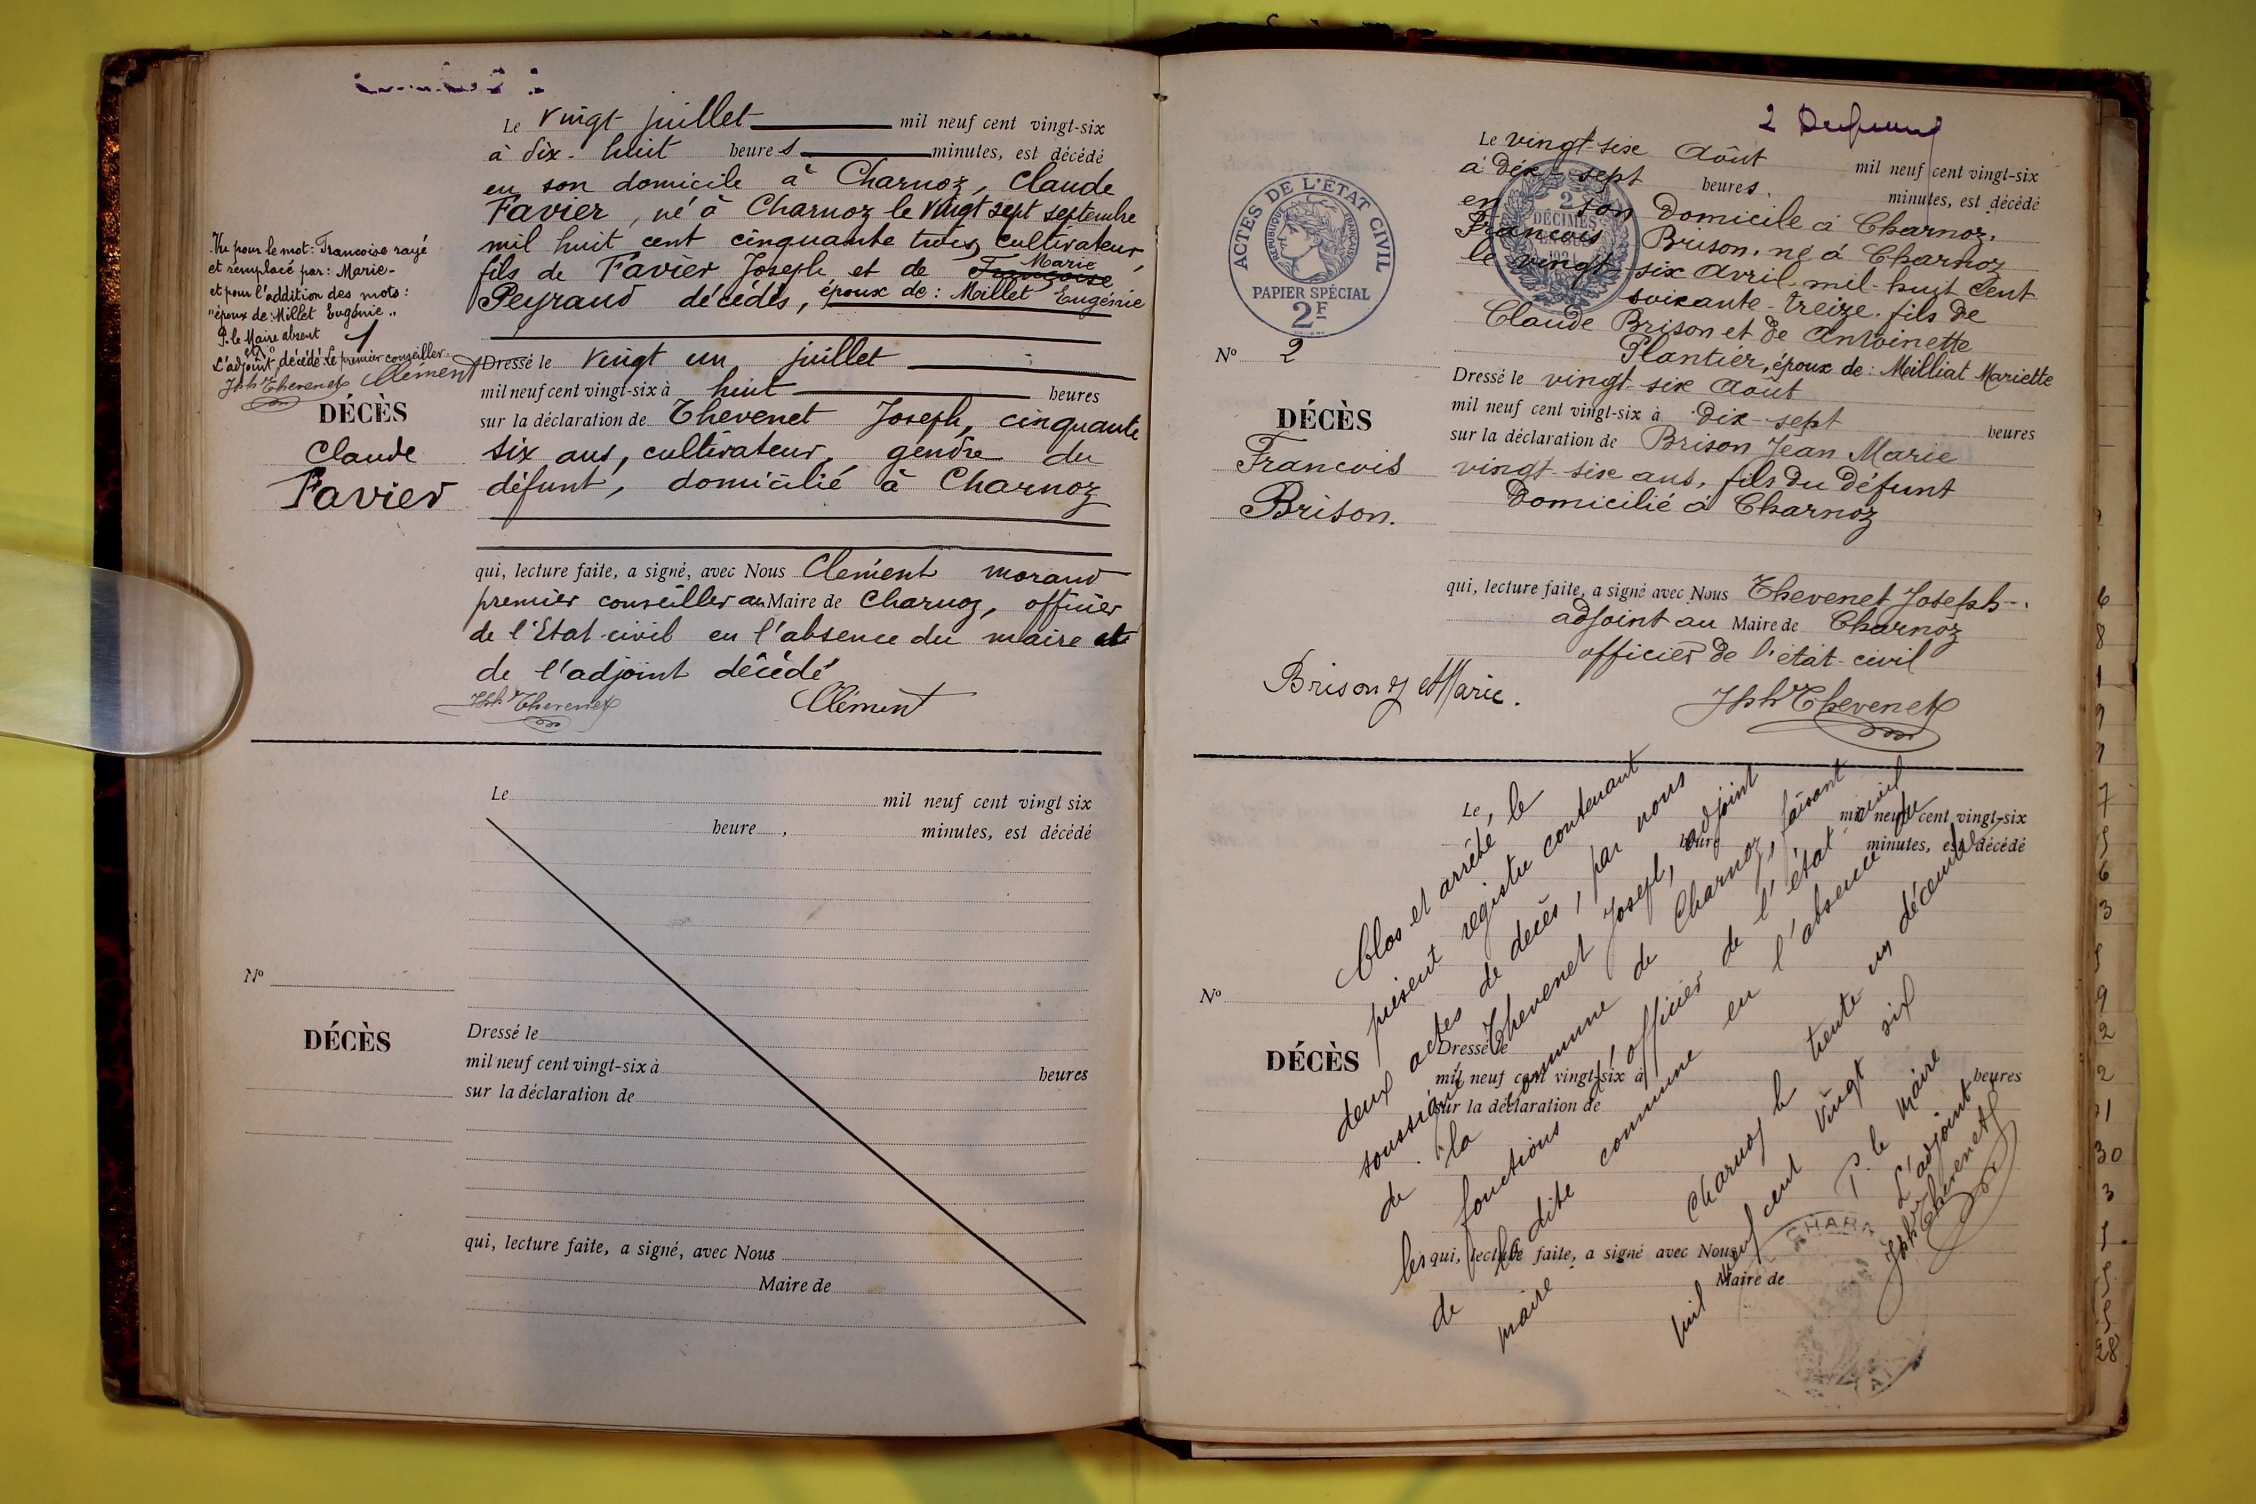 Le vingt juillet mil neuf cent vingt-six
à dix-huit heures minutes, est décédé
en son domicile à Charnoz, Claude
Favier, né à Charnoz le vingt sept septembre
mil huit cent cinquante trois, cultivateur,
fils de Favier Joseph et de Françoise Marie
Peyraud décédés, époux de : Millet Eugénie
Vu pour le mot : Francoise rayé
et remplacé par : Marie-
et pour l'addition des mots :
"époux de : Millet Eugénie"
P. le Maire absent
et
L'adjoint décédé Le premier conseiller
Jph Thevenet Clément
N° 1
DÉCÈS
Claude
Favier
Dressé le vingt un juillet
mil neuf cent vingt-six à huit heures
sur la déclaration de Thevenet Joseph, cinquante
six ans, cultivateur, gendre du
défunt, domicilié à Charnoz
qui, lecture faite, a signé, avec Nous Clément morand
premier conseiller au Maire de Charnoz, officier
de l'Etat-civil en l'absence du maire et
de l'adjoint décédé
Jph Thevenet Clément
Le mil neuf cent vingt six
heure , minutes, est décédé
N°
DÉCÈS
Dressé le
mil neuf cent vingt-six à heures
sur la déclaration de
qui, lecture faite, a signé, avec Nous
Maire de
2
Le vingt-six Août mil neuf cent vingt-six
à dix-sept heures. minutes, est décédé
en son Domicile à Charnoz.
François Brison, né à Charnoz
le vingt-six Avril mil-huit cent
soixante-treize. fils de
Claude Brison et de Antoinette
Plantier, époux de : Milliat Mariette
ACTES DE L'ÉTAT CIVIL
RÉPUBLIQUE FRANÇAISE
PAPIER SPÉCIAL
2F
2
DÉCIMES
N° 2
DÉCÈS
Francois
Brison.
Dressé le vingt-six Août
mil neuf cent vingt-six à dix-sept heures
sur la déclaration de Brison Jean Marie
vingt-six ans, fils du Défunt
Domicilié à Charnoz
qui, lecture faite, a signé avec Nous Thevenet Joseph
adjoint au Maire de Charnoz
officier de l'état-civil
Brison J Marie.
Jph Thevenet
Le, mil neuf cent vingt-six
heure minutes, est décédé
N°
DÉCÈS
Dressé le
mil neuf cent vingt-six à heures
sur la déclaration de
qui, lecture faite, a signé avec Nous
Maire de
Clos et arrêté le
présent registre contenant
deux actes de décès, par nous
soussigné Thevenet Joseph, adjoint
de la commune de Charnoz, faisant
les fonctions d'officier de l'état civil
de la dite commune en l'absence du
maire
Charnoz le trente un décembre
mil neuf cent vingt six
P. le Maire
L'adjoint
Jph Thevenet
6
8
1
9
7
5
6
3
9
2
2
30
3
28